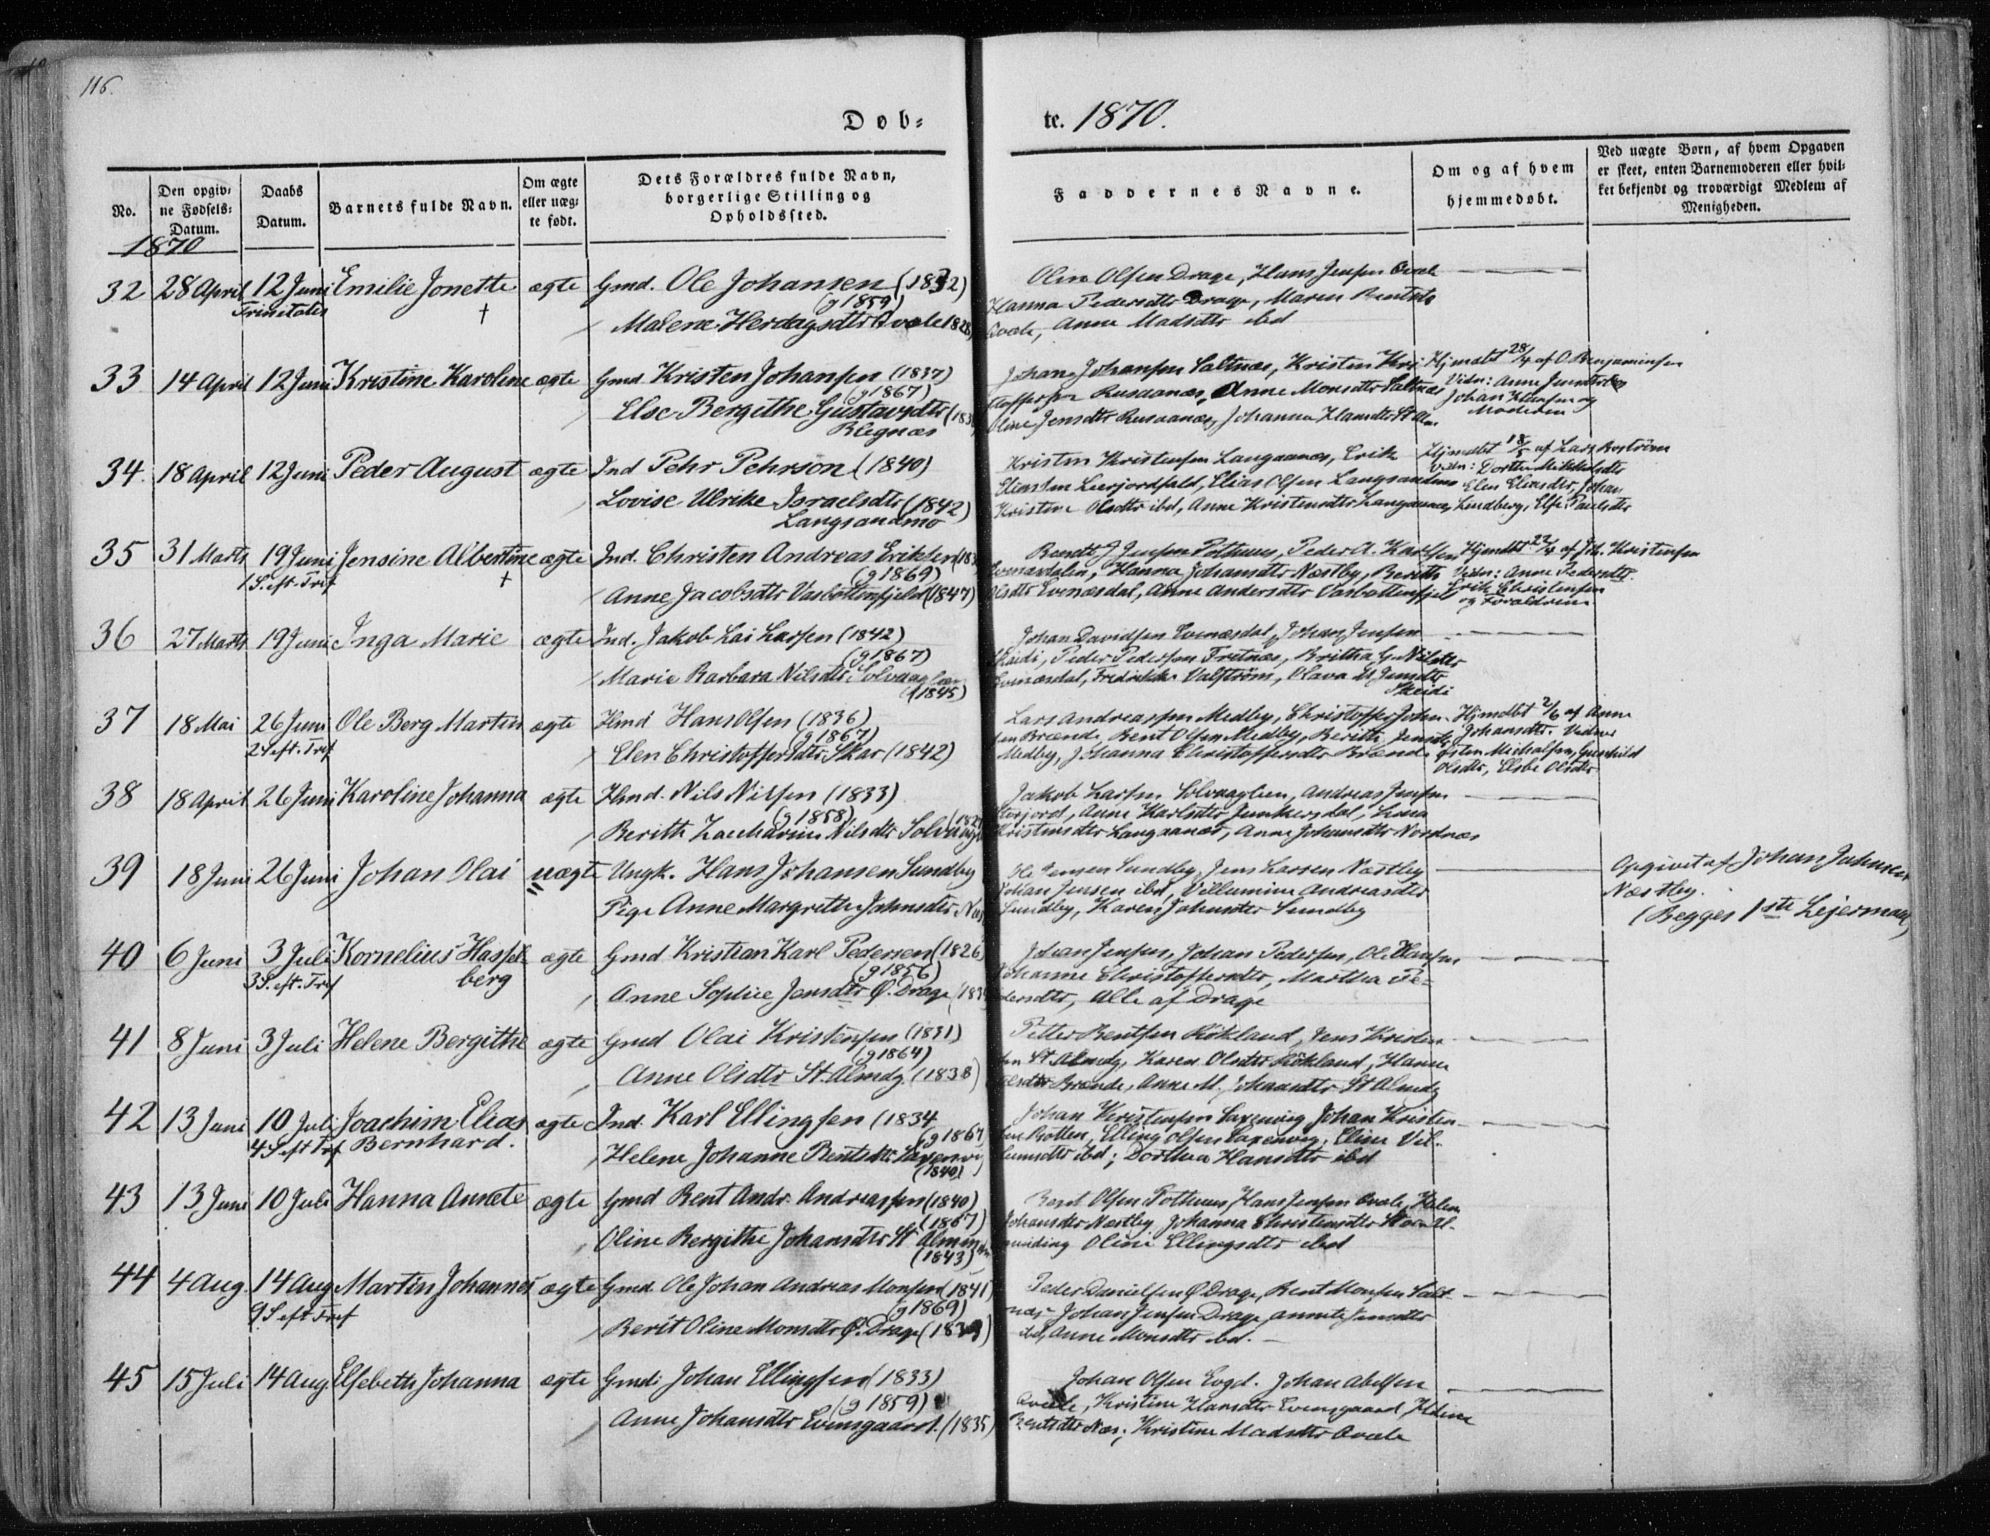 116.
Døb-
te. 1870.
No.
Den opgiv-
ne Fødsels-
Datum.
Daabs
Datum.
Barnets fulde Navn.
Om ægte
eller uæg-
te født.
Dets Forældres fulde Navn,
borgerlige Stilling og
Opholdssted.
Faddernes Navne.
Om og af hvem
hjemmedøbt.
Ved uægte Børn, af hvem Opgaven
er skeet, enten Barnemoderen eller hvil-
ket bekjendt og troværdigt Medlem af
Menigheden.
1870
32 28 April 12 Juni Emilie Jonette ægte Gmd. Ole Johansen (1832)
Trinitatis † (g 1859)
Malena Herdagsdtr Qvale 1828)
Oline Olsen Drage, Hans Jensen Qvale
Hanna Pedersdtr Drage, Maren Bentsdtr
Qvale, Anne Madsdtr ibd
33 14 April 12 Juni Kristine Karoline ægte Gmd Kristen Johansen (1837)
(g 1867)
Else Bergithe Gustavsdtr (183
Blegnæs
Johan Johansen Saltnæs, Kristen Kris-
toffersen Rusaanæs, Anne Monsdtr Saltnæs
Oline Jensdtr Rusaanæs, Johanna Hansdtr St Alm
Hjmdbt 28/4 af O Benjaminsen
Vidn: Anne Jensdtr
Johan Hansen og
Moderen
34. 18 April 12 Juni Peder August ægte Ind Pehr Pehrson (1840)
Lovise Ulrike Israelsdtr (1842)
Langsandmo
Kristen Kristensen Langaanæs, Erik
Eliassen Leirjordfald, Elias Olsen Langsandmo
Kristine Olsdtr ibd, Anne Kristensdtr Langaanæs,
Hjmdbt 18/5 af Lars Boström
Vidn: Dorthe Mikkelsdtr
Elen Eliasdtr, Johan
Lindberg, Else Paulsdtr
35 31 Marts 19 Juni Jensine Albertine ægte Ind. Christen Andreas Eriksen (183
1 S. eft. Tref † (g 1869)
Anne Jacobsdtr Vasbottenfjeld (1847)
Bendt J Jensen Pothuus, Peder A. Karlsen
Evenæsdalen, Hanna Johansdtr Næstby, Berith
Olsdtr Evenæsdal, Anne Andersdtr Vasbottenfjeld
Hjmdbt 22/4 af Joh. Kristensen
Vidn: Anne Pedersdtr.
Erik Christensen
og Forældrene
36 27 Marts 19 Juni Inga Marie ægte Ind. Jakob Lai Larsen (1842)
(g 1867)
Marie Barbara Nilsdtr Solvaaglien
(1845)
Johan Davidsen Evenæsdal, Johan Jensen
Skeidi, Peder Pedersen Fretnæs, Britha G. Nilsdtr
Evenæsdal, Fredrikke Valström, Olava M. Jensdtr
Skeidi
37 18 Mai 26 Juni Ole Berg Martin ægte Hmd Hans Olsen (1836)
2 S. eft. Tref (g 1867)
Elen Christoffersdatr Skar (1842)
Lars Andreassen Medby, Christoffer Johan-
sen Brænde, Bent Olsen Medby, Berith Jensdtr
Medby, Johanna Christoffersdtr Brænde
Hjmdbt 2/6 af Anne
Johansdtr. Vidner
Østen Michalsen, Gunhild
Olsdtr, Elsbe Olsdtr
38 18 April 26 Juni Karoline Johanna ægte Hmd. Nils Nilsen (1833)
(g 1858)
Berith Zacharine Nilsdtr Solvaagli
Jakob Larsen Solvaaglien, Andreas Jensen
Storjord, Anne Karlsdtr Junkersdal, Lina
Kristensdtr Langaanæs, Anne Johansdtr Nordnæs
39 18 Juni 26 Juni Johan Olai uægte Ungk. Hans Johansen Sundby
Pige Anne Margrethe Johnsdtr Næs
Ole Jensen Sundby, Jens Larsen Næstby
Johan Jensen ibd, Villumine Andreasdtr
Sundby, Karen Johnsdtr Sundby
Opgivet af Johan Johnsen
Næstby.
(Begges 1ste Lejermaal)
40 6 Juni 3 Juli Kornelius Hassel- ægte Gmd Kristian Karl Pedersen (1826)
3 S. eft. Tref berg (g 1856)
Anne Sophie Jensdtr Ø. Drage (183
Johan Jensen, Johan Pedersen, Ole Hansen
Johanne Christoffersdtr, Martha Pe-
dersdtr, alle af Drage
41 8 Juni 3 Juli Helene Bergithe ægte Gmd Olai Kristensen (1831)
(g 1864)
Anne Olsdtr St. Almdg (1838)
Petter Bentsen Rökland, Jens Kristen-
sen St Almdg, Karen Olsdtr Rökland, Hanna
Olsdtr Brænde, Anne M. Johansdtr St Almdg
42 13 Juni 10 Juli Joachim Elias ægte Ind. Karl Ellingsen (1834
4 S. eft Tref Bernhard. (g 1867
Helene Johanne Bentsdtr Saxenvi
(1840)
Johan Kristensen Saxenvig Johan Kristen-
sen Botten, Elling Olsen Saxenvig, Eline Vil-
lumsdtr ibd; Dorthea Hansdtr ibd
43 13 Juni 10 Juli Hanna Annete ægte Gmd Bent Andr. Andreassen (1840)
(1867)
Oline Bergithe Johansdtr St Alminden
(1843)
Bent Olsen Pothuus, Hans Jensen Qvale, Helen
Johansdtr Næstby, Johanna Christensdtr Store Al-
minding Oline Ellingsdtr ibd
44 4 Aug. 14 Aug Martin Johannes ægte Gmd. Ole Johan Andreas Monsen (1841)
9 S. eft Tref (g 1869)
Berit Oline Monsdtr Ø. Drage (1839)
Peder Danielsen Ø Drage, Bent Monsen Salt-
næs Johan Jensen Drage, Annete Jensdtr
ibd, Anne Monsdtr ibd. -
45 15 Juli 14 Aug. Elsebeth Johanna ægte Gmd: Johan Ellingsen (1833)
(g 1859)
Anne Johansdtr Evensgaard. (1835)
Johan Olsen Evgd. Johan Abelsen
Qvæle, Kristine Hansdtr Evensgaard, Helene
Bentsdtr Næs, Kristine Madsdtr Qvale